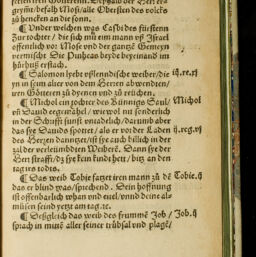 zů hencken an die sonn.
¶ Under welchen was Casbi des fürsten
Zur tochter / die sich mit eim mann vß Israel
offentlich vor Mose vnd der gantzē Gemeyn
vermischt Die Pinheas beyde beyeinand im
hůrhuß erstach.
¶ Salomon hett vßlendische weiber / die iij.re.xj
yn in seim alter von dem Herren abwendten /
iren Götteren zů dienen vnd zů röuchen.
¶ Michol ein tochter des Künnigs Saul / Michol
vñ David eegemahel / wie wol nit sonderlich
in der Schrifft sunst vntadelich / darumb aber
das sye Davids spottet / als er vor der Laden ij.reg.vj
des Herzen dantzet / ist sye auch billich in der
zal der verleimbdten Weiberē. Dann sye der
Herr strafft / dz sye kein kindt hett / biß an den
tag irs todts.
¶ Das weib Tobie fatzet iren mann zů dē Tobie.ij
das er blind was / sprechend. Dein hoffnung
ist offenbarlich vppig vnd eitel / vnnd deine al-
můsen seind yetzt am tag. rc.
¶ Deßglich das weib des frummē Job / Job.ij
sprach in mitē aller seiner trübsal vnd plage /